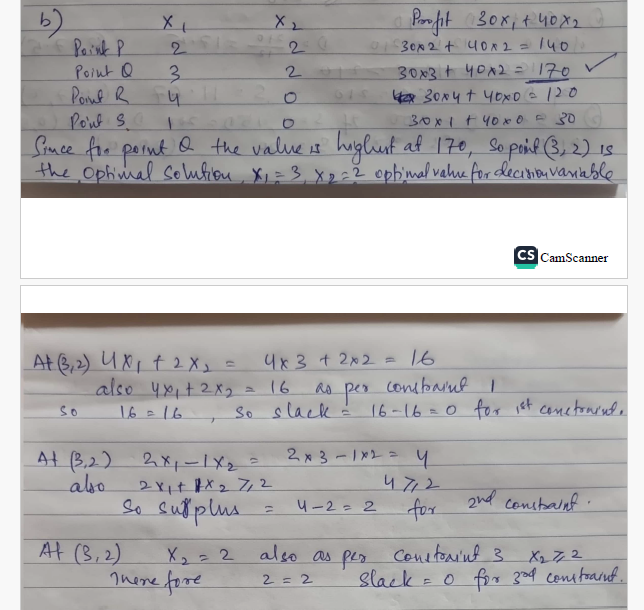 b) X1 X2 Profit 30x1 + 40x2
Point P 2 2 30×2 + 40×2 = 140
Point Q 3 2 30×3 + 40×2 = 170 ✓
Point R 4 0 30×4 + 40×0 = 120
Point S. 1 0 30×1 + 40×0 = 30
Since for point Q the value is highest at 170, So point (3,2) is
the optimal solution X1 = 3, X2 = 2 optimal value for decision variable
CS CamScanner
At (3,2) 4X1 + 2X2 = 4×3 + 2×2 = 16
also 4x1 + 2X2 = 16 as per constraint 1
So 16 = 16, So slack = 16-16 = 0 for 1st constraint.
At (3,2) 2x1 - 1X2 = 2×3 - 1×2 = 4
also 2x1 + 1X2 ⩾ 2 4 ⩾ 2
So surplus = 4-2 = 2 for 2nd constraint.
At (3,2) X2 = 2 also as per Constraint 3 X2 ⩾ 2
Therefore 2 = 2 Slack = 0 for 3rd constraint.